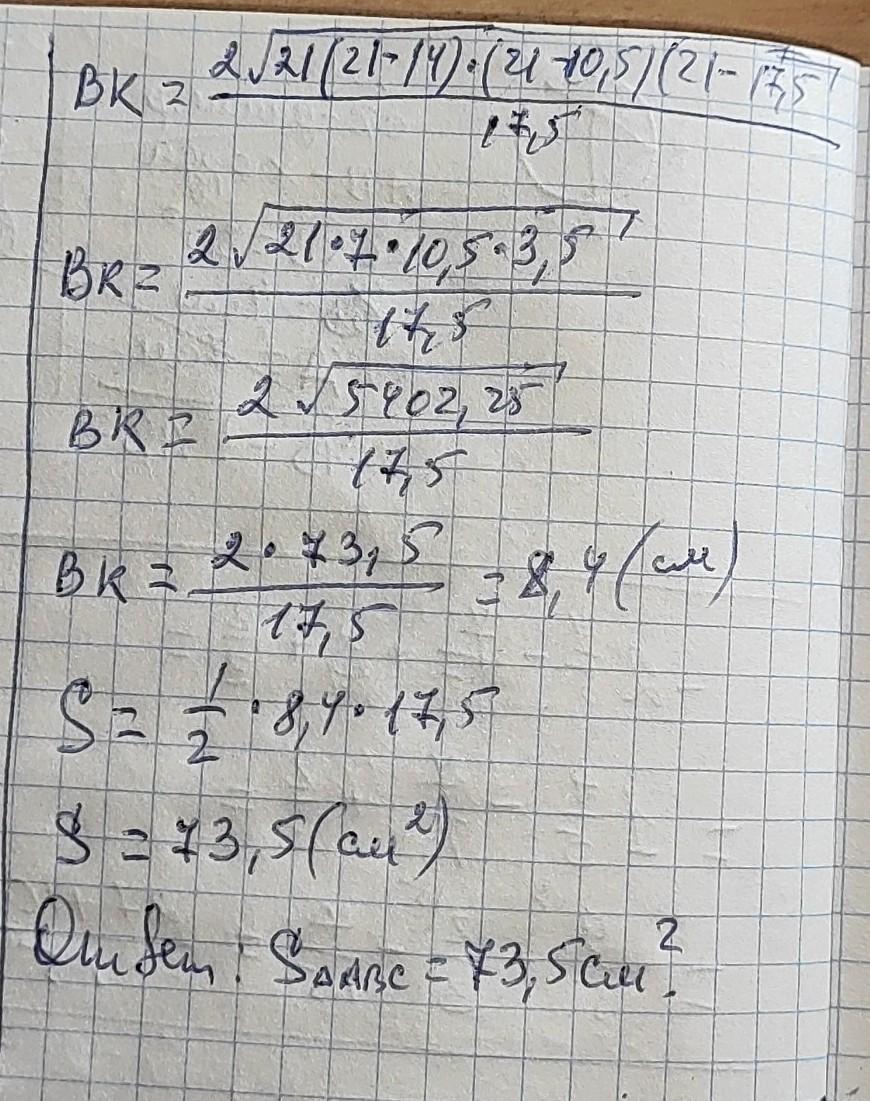 BK = 2√21(21-14)·(21-10,5)(21-17,5 / 17,5
BK = 2√21·7·10,5·3,5 / 17,5
BK = 2√5402,25 / 17,5
BK = 2·73,5 / 17,5 = 8,4 (см)
S = 1/2 · 8,4 · 17,5
S = 73,5 (см²)
Ответ: S△ABC = 73,5 см².